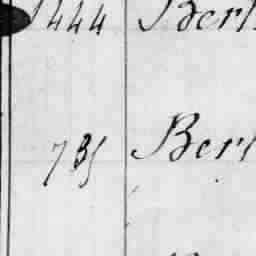 1444 Berl
735 Berl